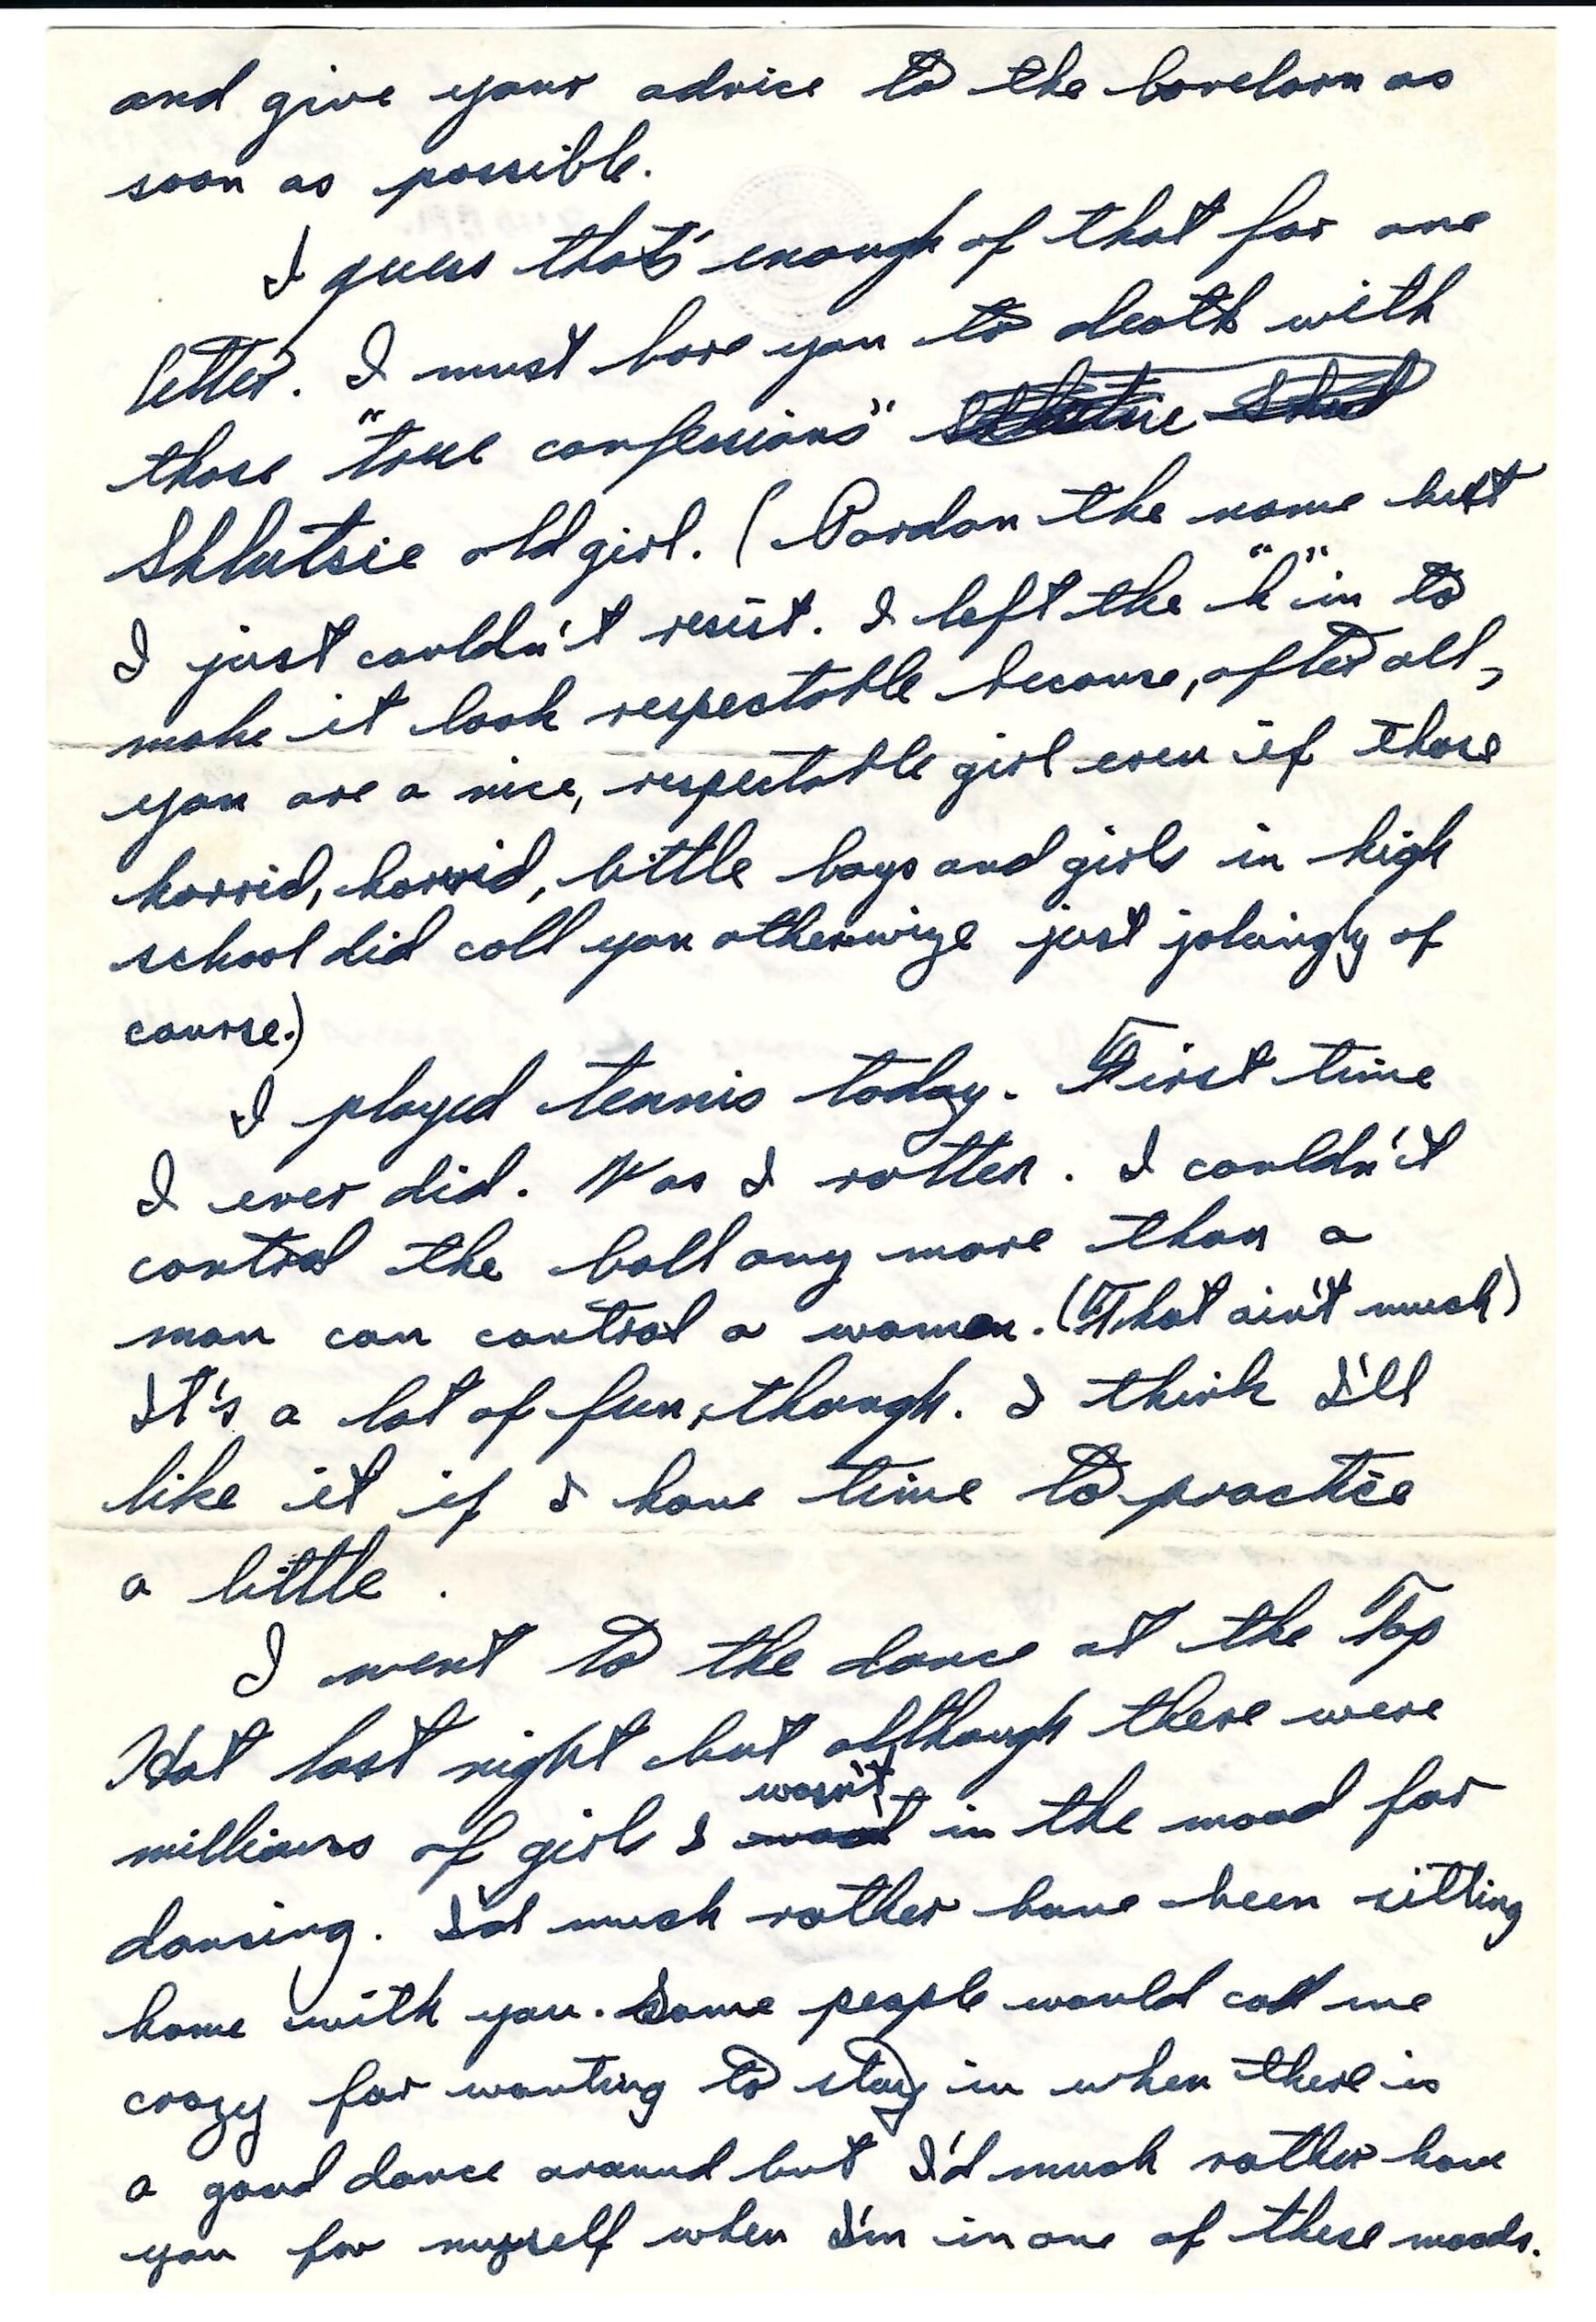 and give your advice to the lovelorn as
soon as possible.
I guess that's enough of that for one
letter. I must bore you to death with
those "true confessions"
Shlutsie old girl. (Pardon the name but
I just couldn't resist. I left the "h" in to
make it look respectable because, after all,
you are a nice, respectable girl even if those
horrid, horrid, little boys and girls in high
school did call you otherwize just jokingly of
course.)
I played tennis today. First time
I ever did. Was I rotten. I couldn't
control the ball any more than a
man can control a woman. (That ain't much)
It's a lot of fun, though. I think I'll
like it if I have time to practice
a little.
I went to the dance at the Top
Hat last night but although there were
millions of girls I wasn't in the mood for
dancing. I'd much rather have been sitting
home with you. Some people would call me
crazy for wanting to stay in when there is
a good dance around but I'd much rather have
you for myself when I'm in one of these moods.